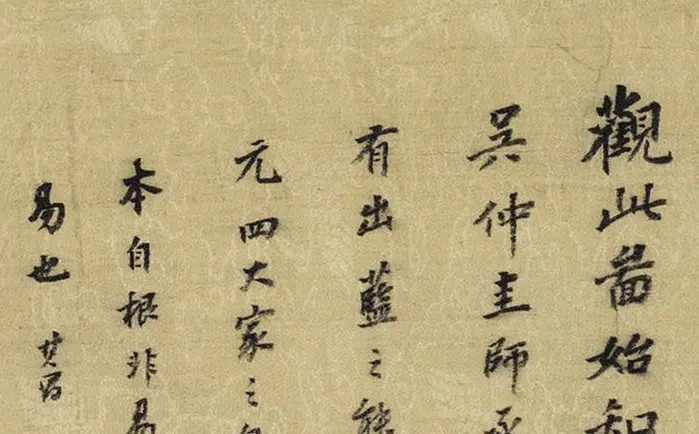 觀此啚始知
吳仲圭師
有出藍之能
元四大家之
本自根非易
易也 其昌